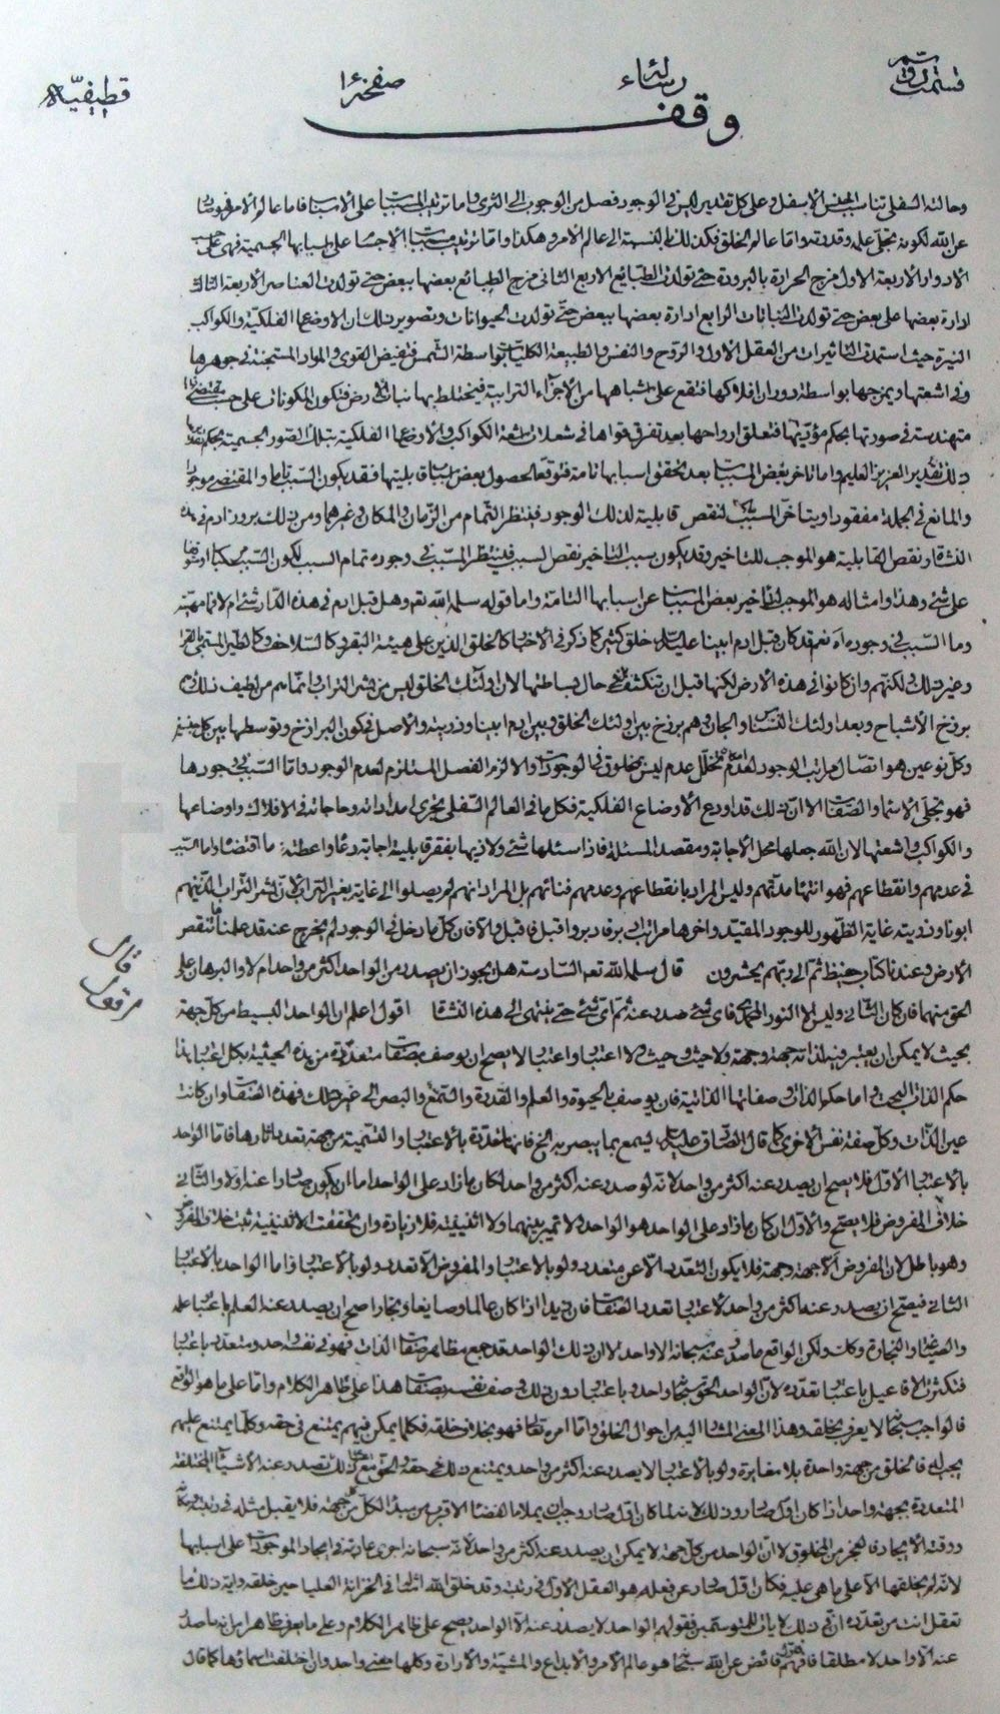 قسمت رسالة صفحة قطيفيّة
وقف
وحالته السفلى تناسب الجنس الأسفل وعلى كل تقدير ليس في الوجود فصل من الوجوب الى الثرى واما ترتب المسببات على الأسباب فاما عالم الامر فهو
عن الله لكونه تجلى علمه وقدرته واما عالم الخلق فكذلك بالنسبة الى عالم الامر وهكذا واما ترتيب مسببات الاجسام على اسبابها الجسمية فهي على
الادوار الاربعة الاول مزج الحرارة بالبرودة حتى تولدت الطبايع الاربع الثاني مزج الطبائع بعضها ببعض حتى تولدت العناصر الاربعة الثالث
ادارة بعضها على بعض حتى تولدت النباتات الرابع ادارة بعضها ببعض حتى تولدت الحيوانات وتصوير ذلك ان الاوضاع الفلكية والكواكب
النيرة حيث استمدت التاثيرات من العقل الاول والروح والنفس والطبيعة الكليات بواسطة الشمس فتفيض القوى والمواد المستجنة في جوهرها
وفي اشعتها ويمزجها بواسطة دوران افلاكها فتقع على مشابهها من الاجزاء الترابية فيختلط بها نبات الارض فتكون المكونات على حسب
متهندسة في صورتها بحكم مؤثرتها فتعلق ارواحها بعد تفرق قواها في شعلات اشعة الكواكب والاوضاع الفلكية بتلك الصور الجسمية بحكم
ذلك تقدير العزيز العليم واما تاخر بعض المسببات بعد تحقق اسبابها تامة فتوقفا لحصول بعض اسباب قابليتها فقد يكون السبب تاما والمقتضي موجودا
والمانع في الجملة مفقودا ويتاخر المسبب لنقص قابلية لذلك الوجود فينتظر التمام من الزمان والمكان وغيرهما ومن ذلك بروز ادم في هذه
النشاة ونقص القابلية هو الموجب للتاخير وقد يكون سبب التاخير نقص السبب فينتظر المسبب في وجوده تمام السبب لكون السبب مركبا او
على شئ وهذا وامثاله هو الموجب لتاخير بعض المسببات عن اسبابها التامة واما قوله سلمه الله نعم وهل قبل ادم في هذه الدار شئ ام لا
وما السبب في وجوده اه نعم قد كان قبل ادم ابينا عليه السلام خلق كثير كما ذكر في الاخبار كالخلق الذين على هيئة البقر وكالسلاحف وكالطير المسمى
وغير ذلك ولكنهم وان كانوا في هذه الارض لكنها قبل ان تتكثف في حال بساطتها لان اولئك الخلق ليس من تراب وانما هم من لطيف ذلك
برزخ الأشباح وبعد اولئك النسناس والجان وهم برزخ بين اولئك الخلق وبين ادم ابينا وذريته والاصل في كون البرازخ وتوسطها بين كل جنسين
وكل نوعين هو اتصال مراتب الوجود لعدم تخلل عدم ليس مخلوق في الوجودات والا لزم الفصل المستلزم لعدم الوجود واما السبب في وجودها
فهو تجلى الاسماء والصفات الا ان ذلك قد اودع الأوضاع الفلكية فكل ما في العالم السفلي يجري امداداته وحاجاته في الافلاك واوضاعها
والكواكب واشعتها لان الله جعلها محل الاجابة ومقصد المسئلة فاذا سئلها شئ ولاذ بها بفقر قابليته اجابت دعاه واعطته ما اقتضاه واما السبب
في عدمهم وانقطاعهم فهو انتهاء مدتهم وليس المراد بانقطاعهم وعدمهم فنائهم بل المراد انهم لم يصلوا الى غاية
ابونا وذريته غاية الظهور للوجود المقيد واخرها مراتب ادبر فادبر واقبل فاقبل والا فان كل ما دخل في الوجود لم يخرج عنه قد علمنا ما تنقص
الأرض وعندنا كتاب حفيظ ثم الى ربهم يحشرون قال سلمه الله نعم السادسة هل يجوز ان يصدر من الواحد اكثر من واحد ام لا والبرهان على
الحق منهما فان كان الثاني وليس الا النور المحمدي فاي شئ صدر عنه ثم اي شئ حتى ينتهى الى هذه النشاة اقول اعلم ان الواحد البسيط من كل جهة
بحيث لا يمكن ان يعتبر فيه لذاته جهة وجهة ولا حيث وحيث ولا اعتبار واعتبار لا يصح ان يوصف بصفات متعددة من هذه الحيثية بكل اعتبار
حكم الذات البحت واما حكم الذات وصفاتها الذاتية فان يوصف بالحيوة والعلم والقدرة والسمع والبصر الى غير ذلك فهذه الصفات وان كانت
عين الذات وكل صفة نفس الاخرى كما قال الصادق عليه السلام يسمع بما يبصر به الخ فانها متعددة بالاعتبار والتسمية من جهة تعدد اثارها فاما الواحد
بالاعتبار الاول فلا يصح ان يصدر عنه اكثر من واحد لانه لو صدر عنه اكثر من واحد لكان ما زاد على الواحد اما ان يكون صادرا عنه اولا والثاني
خلاف المفروض فلا يصح والاول ان كان ما زاد على الواحد هو الواحد ولا تميز بينهما ولا اثنينية فلا زيادة وان تحققت الاثنينية ثبت خلاف المفروض
وهو باطل لان المفروض الا جهة وجهة فلا يكون التعدد الا عن متعدد ولو بالاعتبار والمفروض الا تعدد ولو بالاعتبار فاما الواحد بالاعتبار
الثاني فيصح ان يصدر عنه اكثر من واحد لاعتبار تعدد الصفات فان زيدا اذا كان عالما وصايغا ونجارا صح ان يصدر عنه العلم باعتبار علمه
والصياغة والنجارة وكل ذلك ولكن الواقع ما صدر عنه سبحانه الا واحد لا ان ذلك الواحد قد جمع مظاهر صفات الذات فهو في نفسه واحد ومتعدد باعتبار
فتكثرت الافاعيل باعتبار تعدده لان الواحد الحق سبحانه واحد باعتبار دون ذلك وصف نفسه بصفات هذا على ظاهر الكلام واما على ما هو الواقع
فالواجب سبحانه لا يعرف بخلقه وهذا المعنى المشار اليه من احوال الخلق واما امره تعالى فهو بخلاف خلقه فكلما يمكن فيهم يمتنع في حقه وكلما يمتنع عليهم
يجب له فالخلق من جهة واحدة بلا مغايرة ولو بالاعتبار لا يصدر عنه اكثر من واحد ويمتنع ذلك في حقه والحق تعالى تصدر عنه الأشياء المختلفة
المتعددة بجهة واحدة اذا كان اول صادر وذلك لانه لما كان اول صادر وجب ان يملا ما الفضاء الاقرب من مبدء الكل من جهته فلا يقبل مثله في رتبته
ورقته الأيجاد فالعجز من المخلوق لا ان الواحد من كل جهة لا يمكن ان يصدر عنه اكثر من واحد لانه سبحانه اجرى عادته في ايجاد الموجودات على اسبابها
لانه لم يخلقها الا على ما هي عليه فكان اول صادر عن فعله هو العقل الاول في رتبته وقد خلق الله اشياء في الخزانة العليا حين خلقه واية ذلك ما
تعقل انت من تعدده ان في ذلك لايات للمتوسمين فقولهم الواحد لا يصدر عنه الا الواحد يصح على ظاهر الكلام وعلى ما يعرف ظاهرا من انه ما صدر
عنه الا واحد لا مطلقا فافهم فائض عن الله سبحانه هو عالم الامر والابداع والمشية والأرادة وكلها بمعنى واحد وان اختلفت اسماؤها كما قال